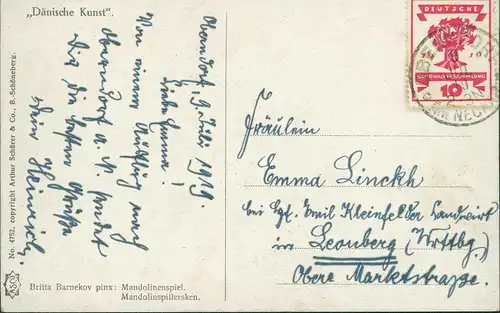 „Dänische Kunst“.
Oberndorf, 9. Juli 1919.
Liebe Emma!
Von einem Ausflug nach
Oberndorf a. N. sendet
Dir die besten Grüße
Dein Heinrich.
No. 4752, copyright Arthur Schürer & Co., B.-Schöneberg.
ASCO
Britta Barnekov pinx: Mandolinenspiel.
Mandolinspillersken.
DEUTSCHE
19 19
NATIONALVERSAMMLUNG
10
Fräulein
Emma Linckh
bei Hr. Emil Kleinfelder Landwirt
in Leonberg (Wrttbg.)
Obere Marktstraße.